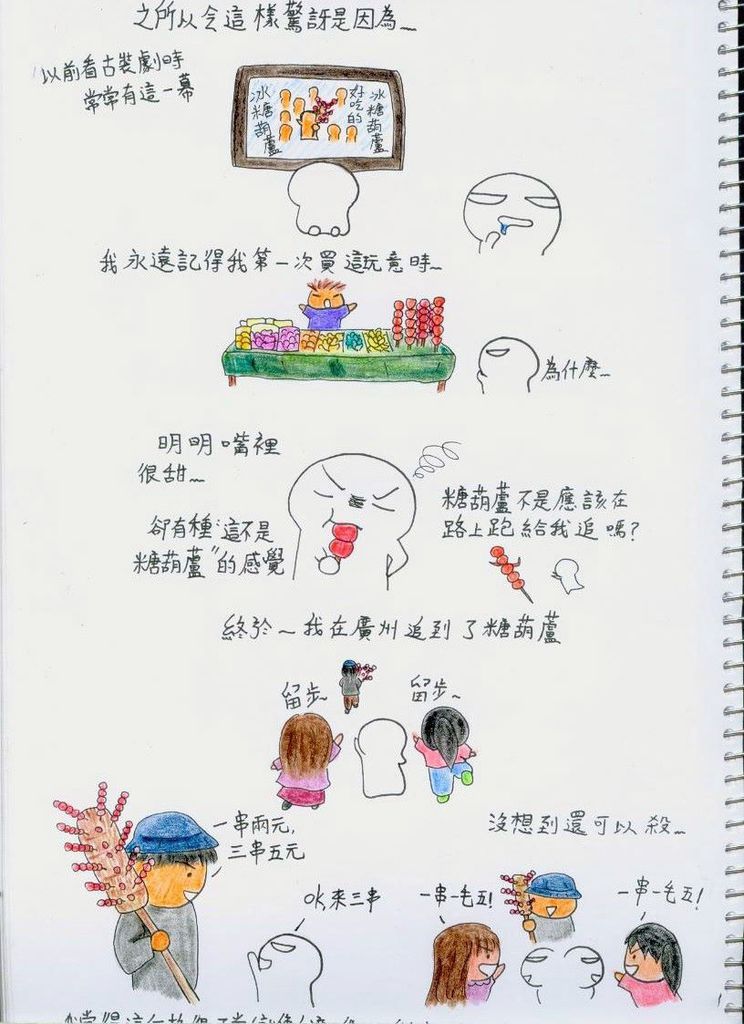 之所以令這樣驚訝是因為~
以前看古裝劇時
常常有這一幕
冰糖葫蘆
好吃的
冰糖葫蘆
我永遠記得我第一次買這玩意時~
為什麼~
明明嘴裡
很甜~
卻有種"這不是
糖葫蘆"的感覺
糖葫蘆不是應該在
路上跑給我追嗎?
終於~我在廣州追到了糖葫蘆
留步~
留步~
一串兩元,
三串五元
沒想到還可以殺~
OK,來三串
一串一毛五!
一串一毛五!